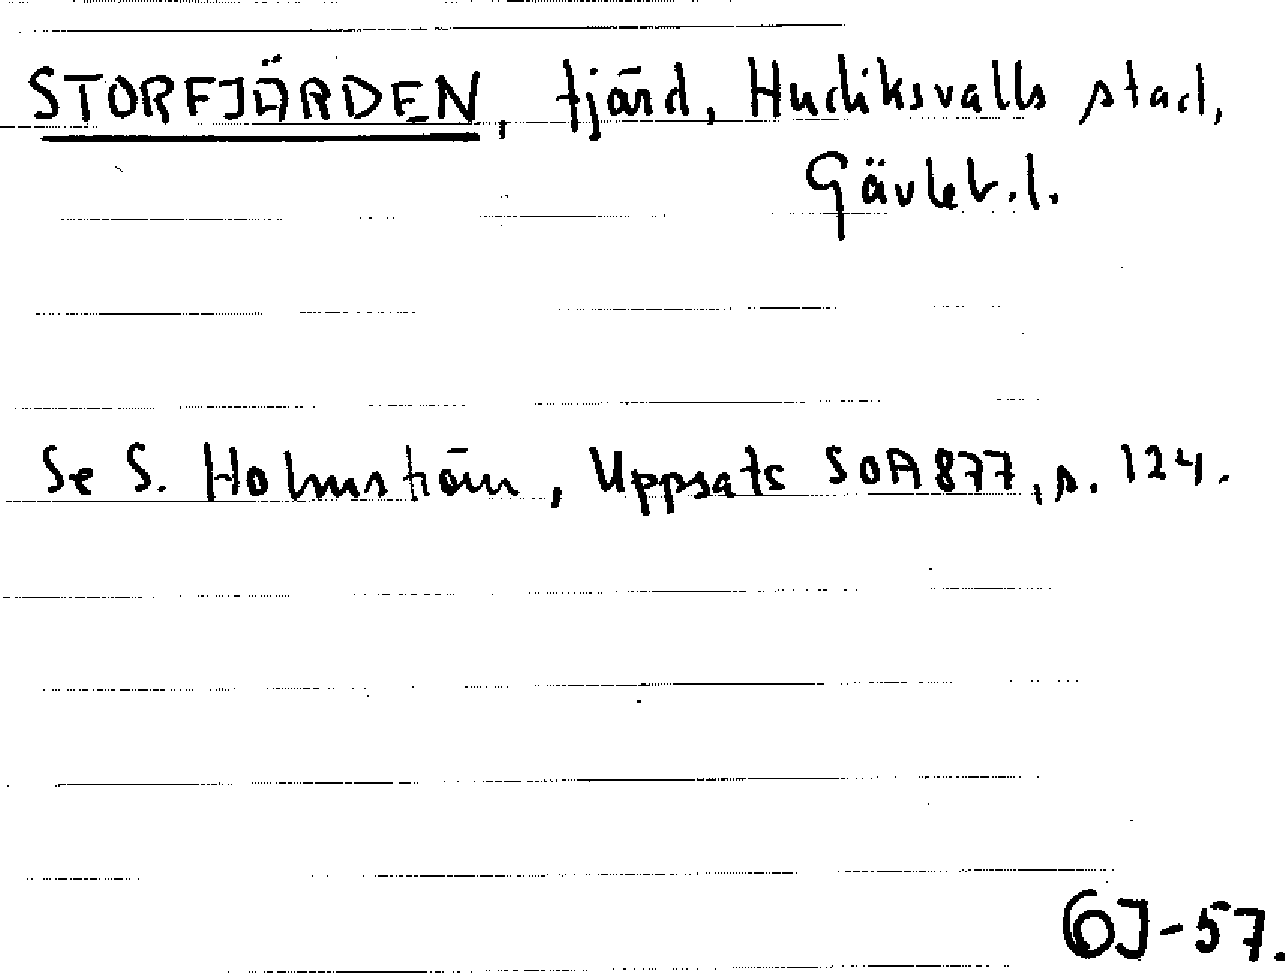 STORFJÄRDEN, fjärd, Hudiksvalls stad,
Gävleb.l.
Se S. Holmström, Uppsats SOA 877, s. 124.
GJ-57.